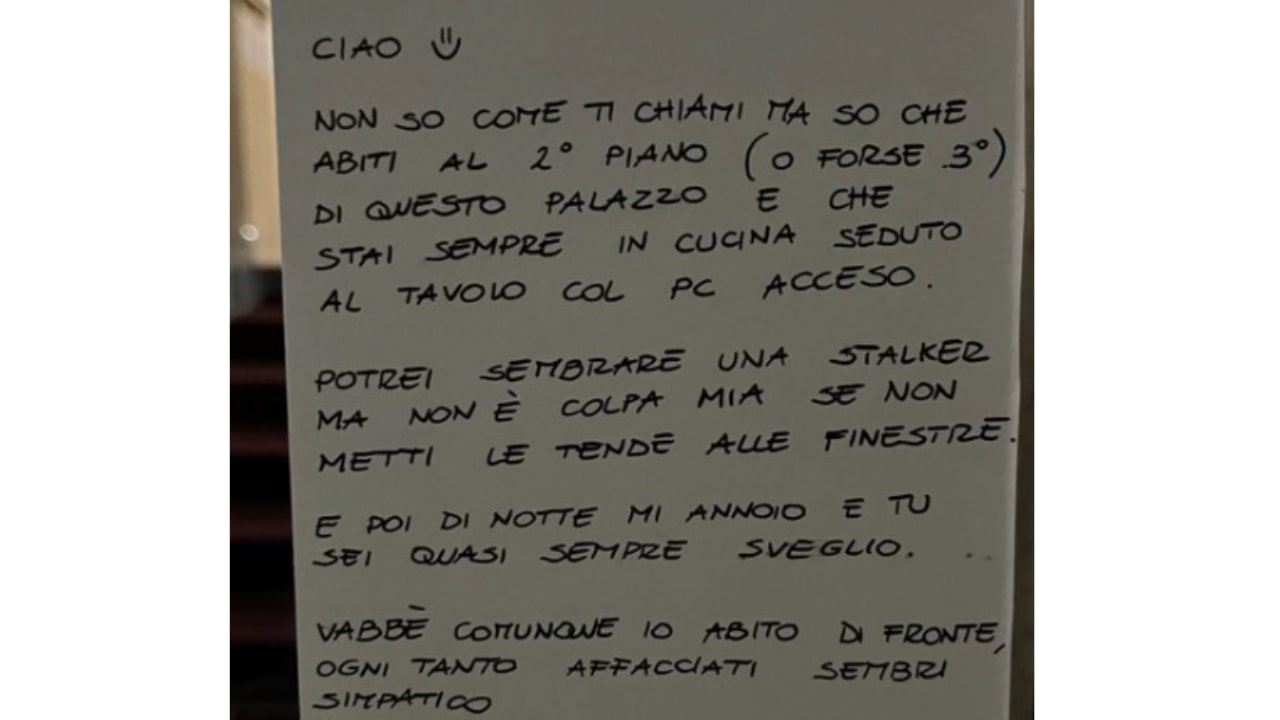 CIAO
NON SO COME TI CHIAMI MA SO CHE
ABITI AL 2° PIANO (O FORSE 3°)
DI QUESTO PALAZZO E CHE
STAI SEMPRE IN CUCINA SEDUTO
AL TAVOLO COL PC ACCESO.
POTREI SEMBRARE UNA STALKER
MA NON È COLPA MIA SE NON
METTI LE TENDE ALLE FINESTRE.
E POI DI NOTTE MI ANNOIO E TU
SEI QUASI SEMPRE SVEGLIO.
VABBÈ COMUNQUE IO ABITO DI FRONTE,
OGNI TANTO AFFACCIATI SEMBRI
SIMPATICO